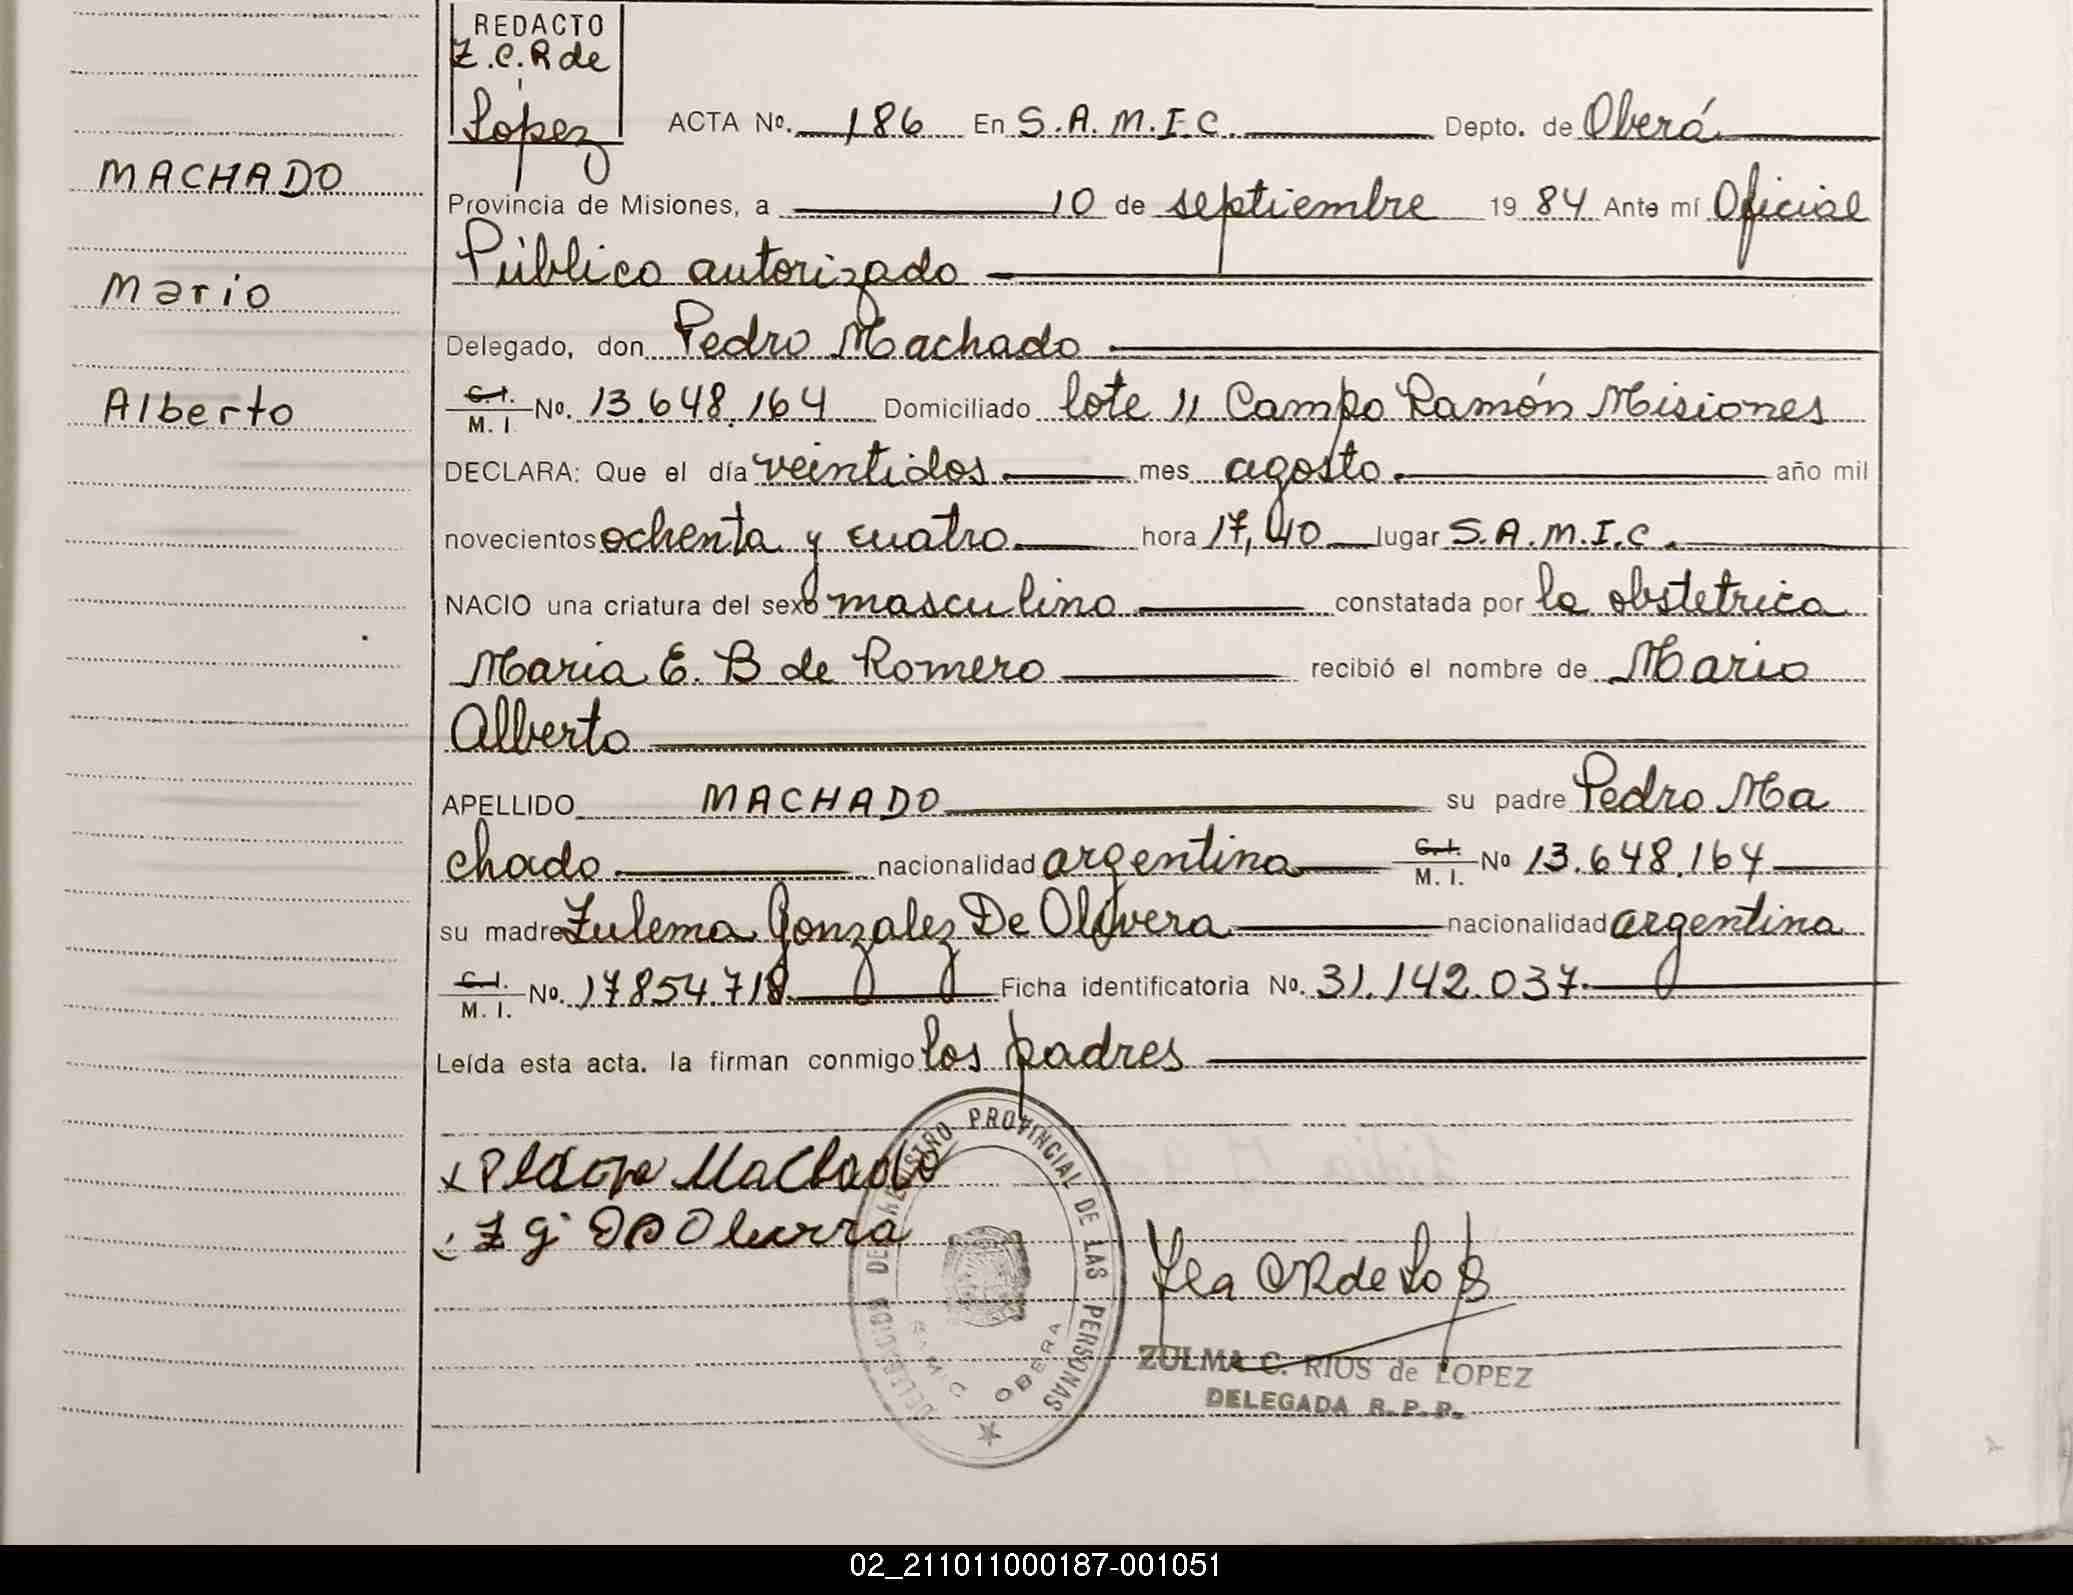 REDACTO
Z.C.R de
Lopez
ACTA No. 186 En S.A.M.I.C. Depto. de Oberá
MACHADO
Provincia de Misiones, a 10 de septiembre 1984 Ante mí Oficial
Público autorizado
Mario
Delegado, don Pedro Machado
Alberto
C.I. M.I. No. 13.648.164 Domiciliado lote 11 Campo Ramón Misiones
DECLARA: Que el día veintidos mes agosto año mil
novecientos ochenta y cuatro hora 17,40 lugar S.A.M.I.C.
NACIO una criatura del sexo masculino constatada por la obstetrica
Maria E. B de Romero recibió el nombre de Mario
Alberto
APELLIDO MACHADO su padre Pedro Ma
chado nacionalidad argentina C.I. M.I. No 13.648.164
su madre Zulema Gonzalez De Olivera nacionalidad argentina
C.I. M.I. No. 17854.718 Ficha identificatoria No. 31.142.037
Leída esta acta. la firman conmigo los padres
Machado
Z g
DELEGACION DEL REGISTRO PROVINCIAL DE LAS PERSONAS
S.A.M.I.C. OBERA
ZULMA C. RIOS de LOPEZ
DELEGADA R.P.P.
02_211011000187-001051